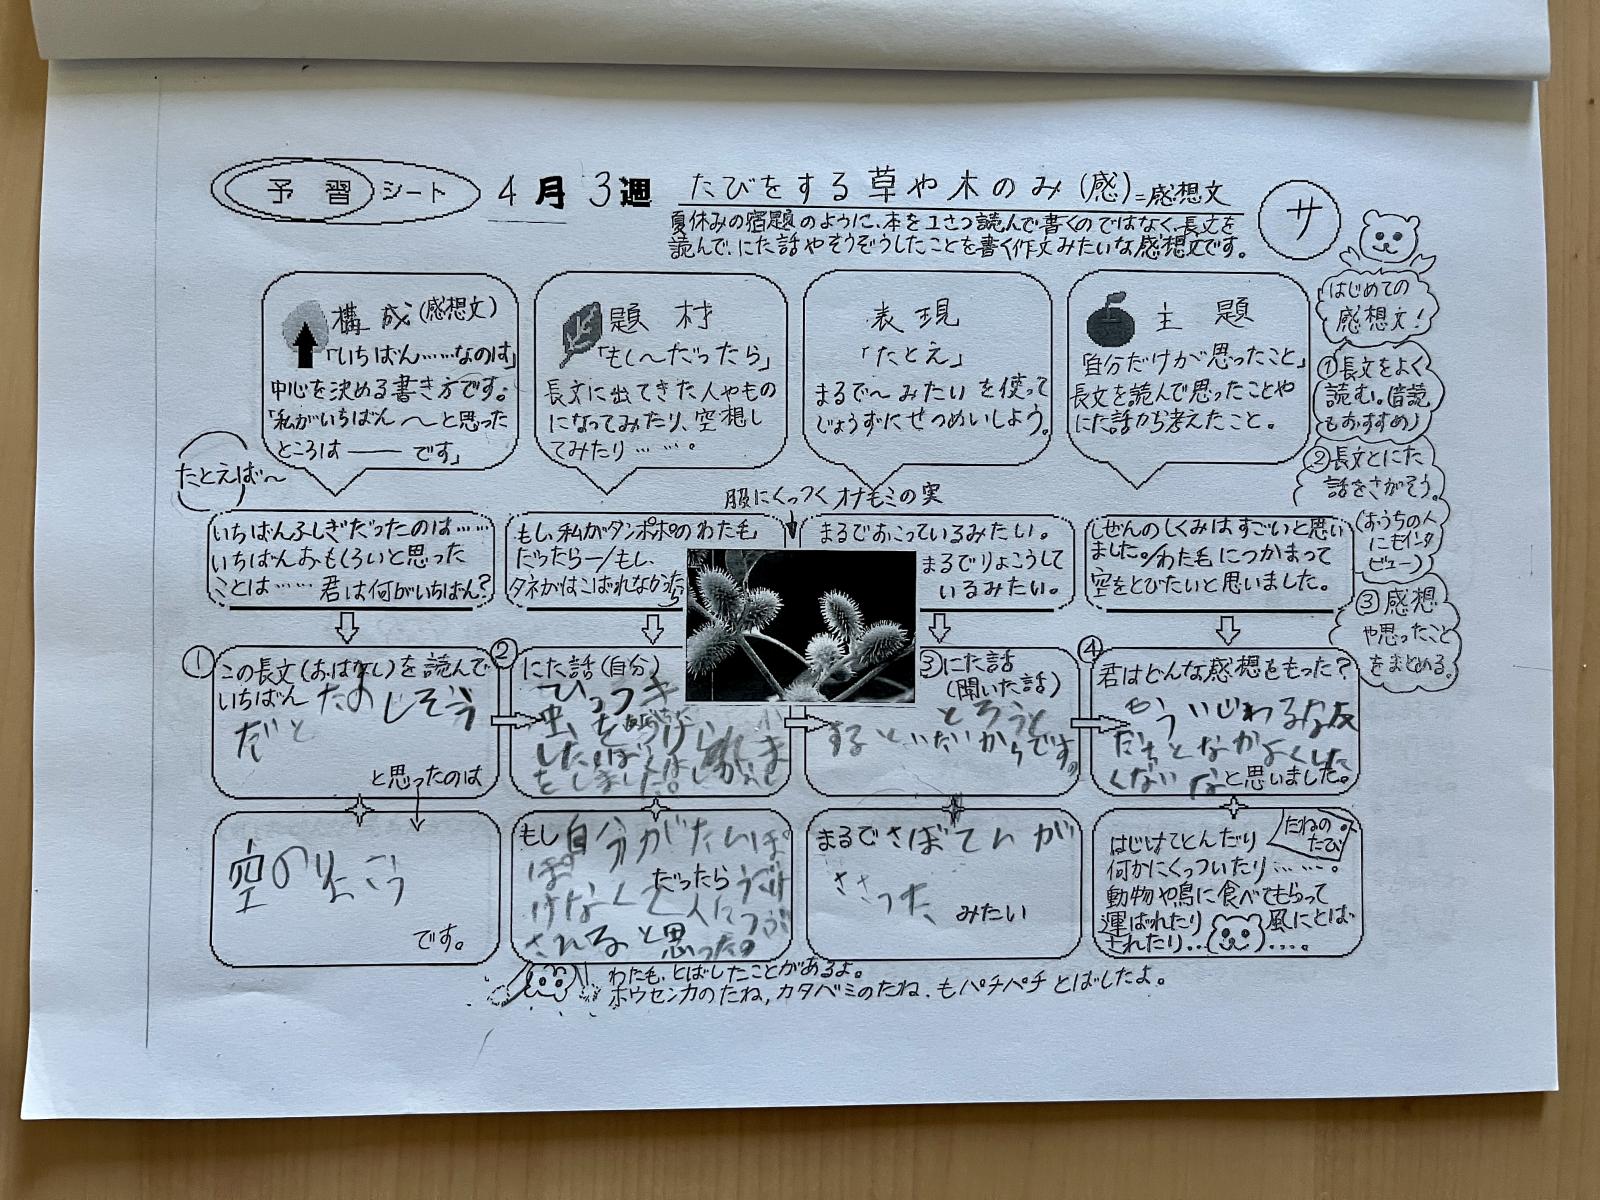 予習シート 4月3週 たびをする草や木のみ(感)=感想文
夏休みの宿題のように、本を1さつ読んで書くのではなく、長文を
読んで、にた話やそうぞうしたことを書く作文みたいな感想文です。
サ
はじめての
感想文!
①長文をよく
読む。(音読
もおすすめ)
②長文とにた
話をさがそう。
(おうちの人
にもインタ
ビュー)
③感想
や思ったこと
をまとめる。
構成(感想文)
「いちばん……なのは」
中心を決める書き方です。
「私がいちばん〜と思った
ところは――です」
題材
「もし〜だったら」
長文に出てきた人やもの
になってみたり、空想し
てみたり……。
表現
「たとえ」
まるで〜みたいを使って
じょうずにせつめいしよう。
主題
「自分だけが思ったこと」
長文を読んで思ったことや
にた話から考えたこと。
たとえば〜
服にくっつくオナモミの実
いちばんふしぎだったのは……
いちばんおもしろいと思った
ことは……君は何がいちばん?
もし、私がタンポポのわた毛
だったら―/もし、
タネがはこばれなかったら
まるでおこっているみたい。
まるでりょこうして
いるみたい。
しぜんのしくみはすごいと思い
ました。/わた毛につかまって
空をとびたいと思いました。
①この長文(おはなし)を読んで
いちばんたのしそう
だと
と思ったのは
空のりょこう
です。
②にた話(自分)
ひっつき
虫を
をしました。
もし自分がたんぽ
ぽ だったら
けなくて人につぶ
されると思った。
③にた話
(聞いた話)
とろうと
するといたいからです。
まるでさぼてんが
ささった みたい
④君はどんな感想をもった?
もういじわるな友
だちとなかよくした
くないなと思いました。
たねの
たび
はじけてとんだり
何かにくっついたり……。
動物や鳥に食べてもらって
運ばれたり 風にとば
されたり……。
わた毛、とばしたことがあるよ。
ホウセンカのたね、カタバミのたね、もパチパチとばしたよ。